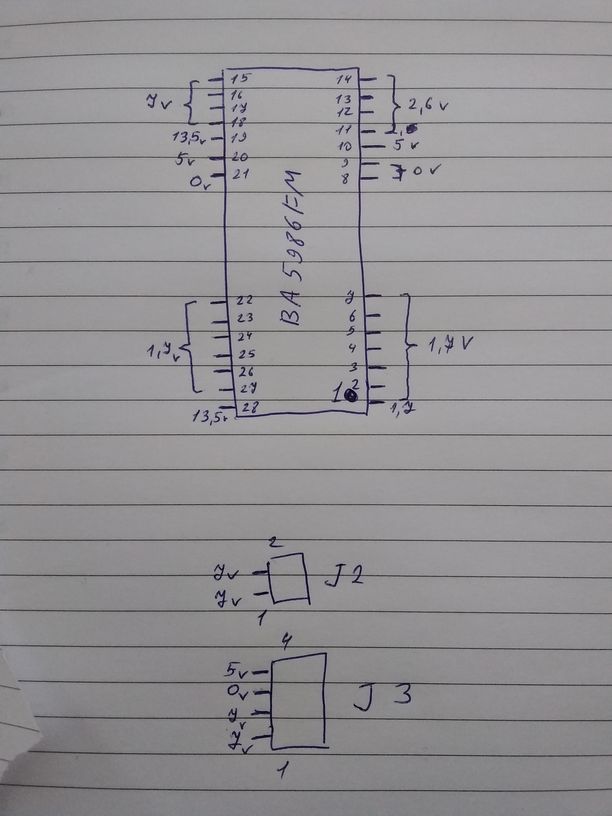 15 14
7v 16 13 2,6 v
17 12
18 11
13,5v 19 10 5v
5v 20 9
0v 21 8 0v
BA5986FM
22 7
23 6
24 5
1,7v 25 4 1,7 V
26 3
27 2
13,5v 28 1 1,7
2
7v J2
7v
1
4
5v
0v J3
7v
7v
1